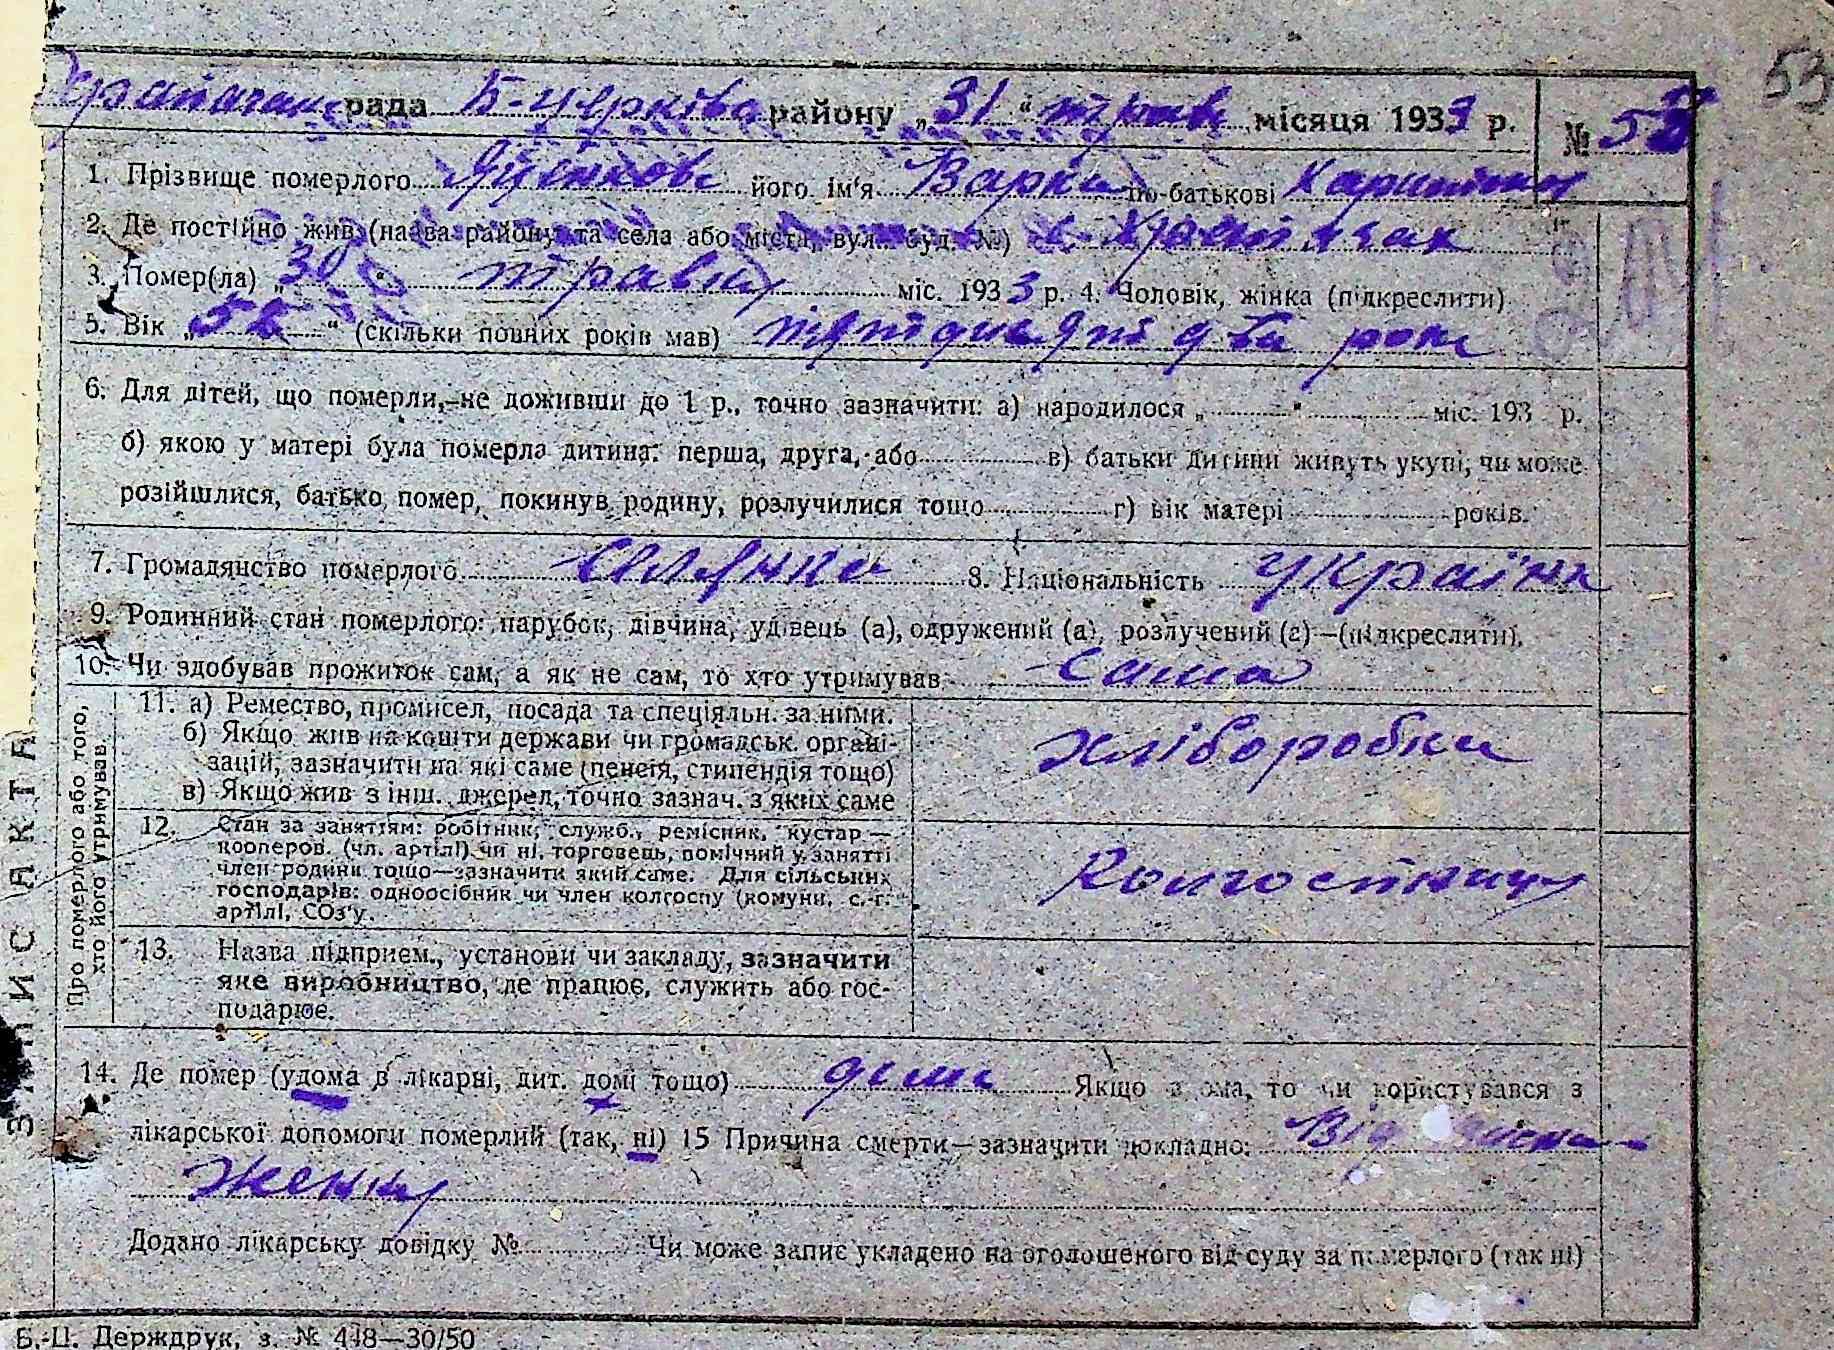 53
рада Б-Церківс району „31“ травня місяця 1933 р. № 53
1. Прізвище померлого його ім'я Варка по-батькові
2. Де постійно жив (назва району та села або міста, вул. буд. №) с. Храпачах
3. Помер(ла) „30“ травня міс. 1933 р. 4. Чоловік, жінка (підкреслити).
5. Вік „52“ (скільки повних років мав) пятдесят два роки
6. Для дітей, що померли, не доживши до 1 р., точно зазначити: а) народилося „ “ міс. 193 р.
б) якою у матері була померла дитина: перша, друга, або в) батьки дитини живуть укупі, чи може
розійшлися, батько помер, покинув родину, розлучилися тощо г) вік матері років.
7. Громадянство померлого селянка 8. Національність українка
9. Родинний стан померлого: парубок, дівчина, удівець (а), одружений (а), розлучений (а)—(підкреслити).
10. Чи здобував прожиток сам, а як не сам, то хто утримував сама
ЗАПИС АКТА
Про померлого або того, хто його утримував.
11. а) Ремество, промисел, посада та спеціяльн. за ними.
б) Якщо жив на кошти держави чи громадськ. органі-
зацій, зазначити на які саме (пенсія, стипендія тощо)
в) Якщо жив з інш. джерел, точно зазнач. з яких саме
хліборобка
12. Стан за заняттям: робітник, служб., ремісник, кустар —
кооперов. (чл. артілі) чи ні, торговець, помічний у занятті
член родини тощо—зазначити який саме. Для сільських
господарів: одноосібник чи член колгоспу (комуни, с.-г.
артілі, СОЗ'у.
Колгоспниця
13. Назва підприєм., установи чи закладу, зазначити
яке виробництво, де працює, служить або гос-
подарює.
14. Де помер (удома в лікарні, дит. домі тощо) дома Якщо вдома, то чи користувався з
лікарської допомоги померлий (так, ні) 15 Причина смерти—зазначити докладно: Від
ження
Додано лікарську довідку № Чи може запис укладено на оголошеного від суду за померлого (так ні)
Б.-Ц. Держдрук, з. № 448—30/50